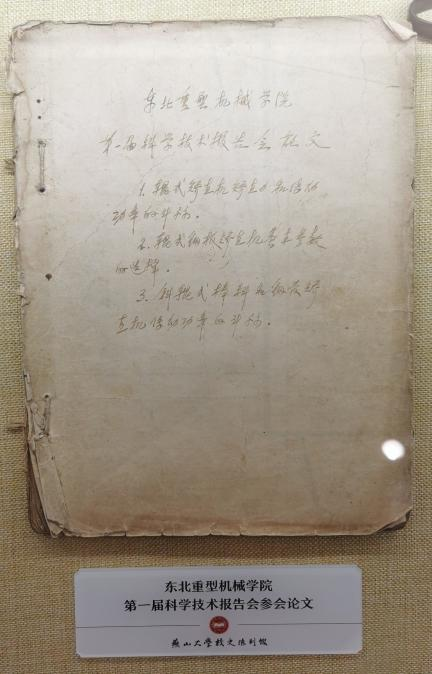 东北重型机械学院
第一届科学技术报告会论文
1. 辊式矫直机矫直力和传动
功率的计称。
2. 辊式钢板矫直机基本参数
的选择。
3. 斜辊式棒料和钢管矫
直机传动功率的计称。
东北重型机械学院
第一届科学技术报告会参会论文
燕山大学校史陈列馆